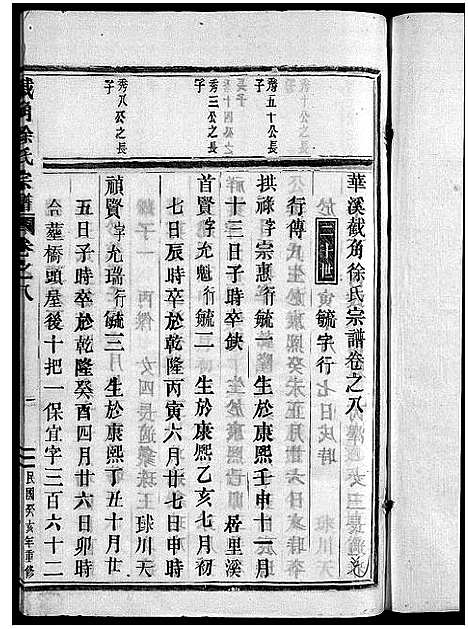 華溪截角徐氏宗譜卷之八
二十世 毓字行
行傳
秀五十公長子
拱祿字宗惠行毓一 生於康熙壬申十一月
十三日子時卒缺 居里溪
秀三公之長子
首賢字允魁行毓二 生於康熙乙亥七月初
七日辰時卒於乾隆丙寅六月廿七日申時
秀八公之長子
禎賢字允瑞行毓三 生於康熙丁丑十月廿
五日子時卒於乾隆癸酉四月廿六日卯時
仝塟橋頭屋後十把一保宜字三百六十二
截角徐氏宗譜 卷之八
一
民國癸亥年重修